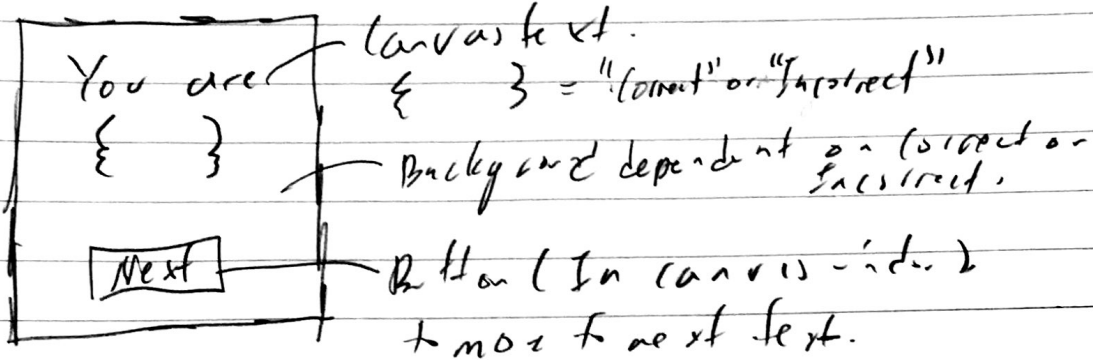 You are
{ }
Next
Canvas text.
{ } = "Correct" or "Incorrect"
Background dependent on Correct or
Incorrect.
Button (In canvas window)
to move to next text.